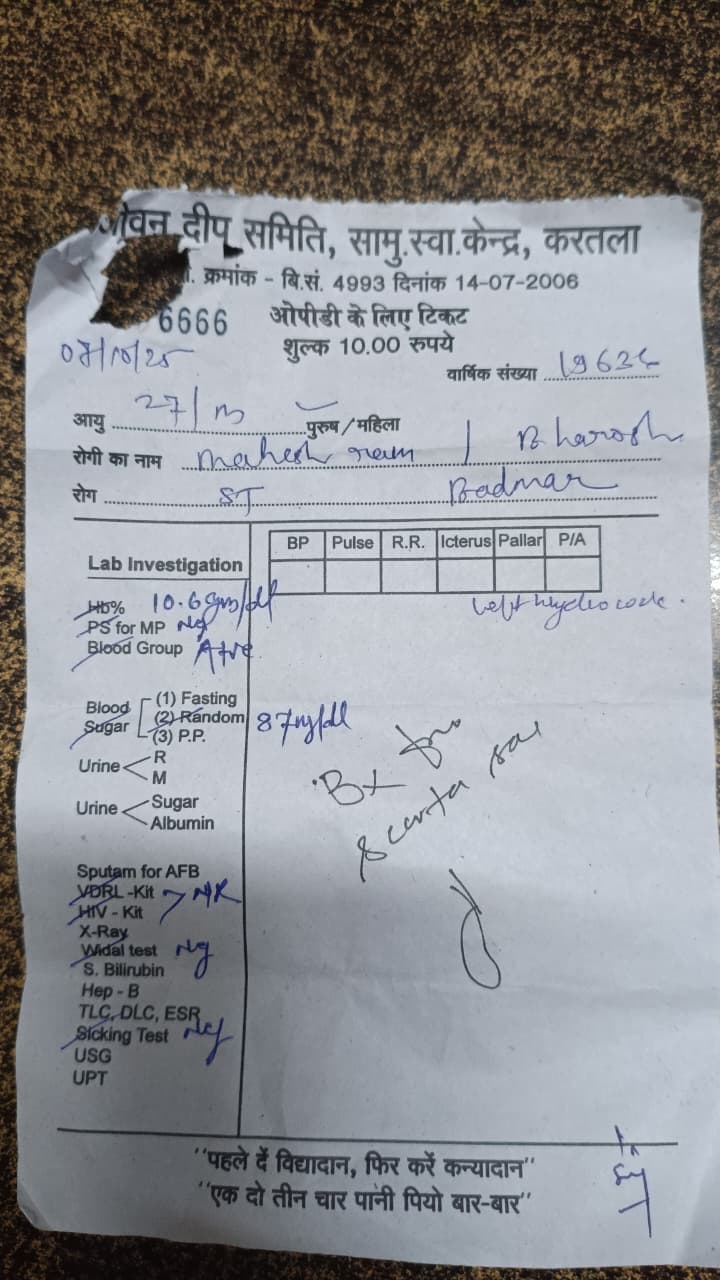 जीवन दीप समिति, सामु.स्वा.केन्द्र, करतला
क्रमांक - बि.सं. 4993 दिनांक 14-07-2006
6666 ओपीडी के लिए टिकट
07/10/25 शुल्क 10.00 रुपये
वार्षिक संख्या
आयु 27/M पुरुष/महिला
रोगी का नाम Mahesh ram
रोग ST Badmar
Lab Investigation BP Pulse R.R. Icterus Pallar P/A
Hb% 10.6 gm/dl
PS for MP Neg Left hydrocode.
Blood Group A+ve
Blood Sugar (1) Fasting
(2) Random 87mg/dl
(3) P.P.
Urine R
M
Urine Sugar
Albumin
Sputam for AFB
VDRL -Kit NR
HIV - Kit
X-Ray
Widal test Neg
S. Bilirubin
Hep - B
TLC, DLC, ESR
Sicking Test Neg
USG
UPT
"पहले दें विद्यादान, फिर करें कन्यादान"
"एक दो तीन चार पानी पियो बार-बार"